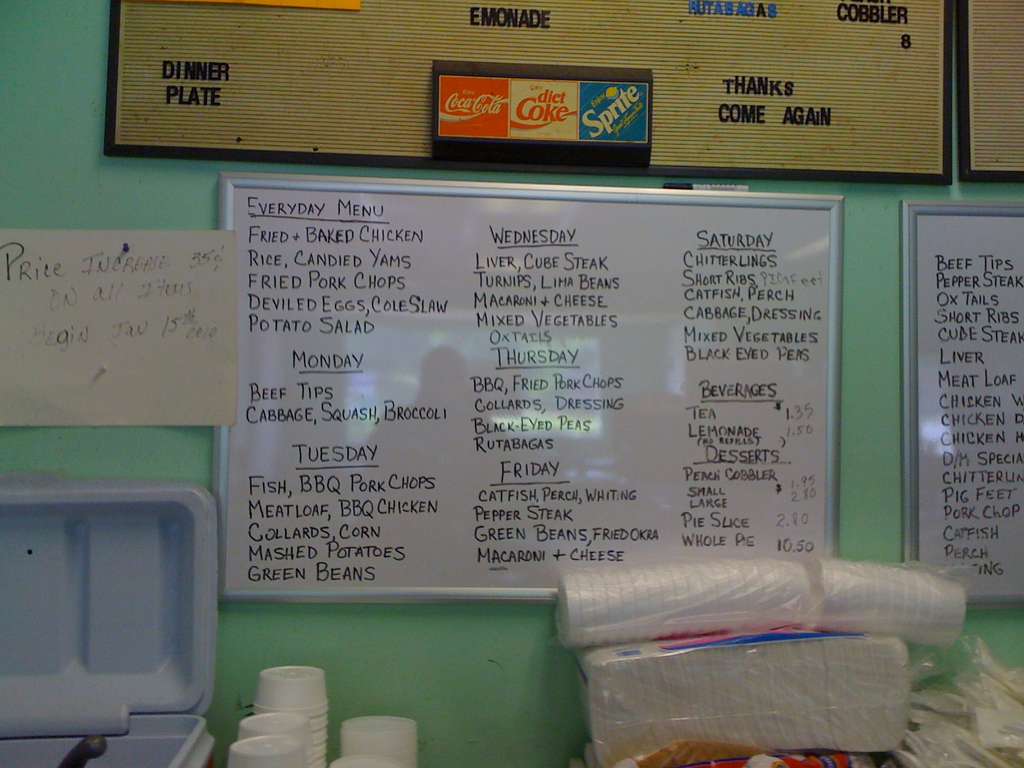 EMONADE
RUTABAGAS
COBBLER
8
DINNER
PLATE
Coca-Cola
diet
Coke
Enjoy
Sprite
THANKS
COME AGAIN
PRICE INCREASE 35¢
ON all
Begin Jan 15th
EVERYDAY MENU
FRIED + BAKED CHICKEN
RICE, CANDIED YAMS
FRIED PORK CHOPS
DEVILED EGGS, COLE SLAW
POTATO SALAD
MONDAY
BEEF TIPS
CABBAGE, SQUASH, BROCCOLI
TUESDAY
FISH, BBQ PORK CHOPS
MEATLOAF, BBQ CHICKEN
COLLARDS, CORN
MASHED POTATOES
GREEN BEANS
WEDNESDAY
LIVER, CUBE STEAK
TURNIPS, LIMA BEANS
MACARONI + CHEESE
MIXED VEGETABLES
OXTAILS
THURSDAY
BBQ, FRIED PORK CHOPS
COLLARDS, DRESSING
BLACK-EYED PEAS
RUTABAGAS
FRIDAY
CATFISH, PERCH, WHITING
PEPPER STEAK
GREEN BEANS, FRIED OKRA
MACARONI + CHEESE
SATURDAY
CHITTERLINGS
SHORT RIBS, PIGS FEET
CATFISH, PERCH
CABBAGE, DRESSING
MIXED VEGETABLES
BLACK EYED PEAS
BEVERAGES
TEA $1.35
LEMONADE 1.50
(NO REFILLS)
DESSERTS
PEACH COBBLER
SMALL $1.95
LARGE 2.80
PIE SLICE 2.80
WHOLE PIE 10.50
BEEF TIPS
PEPPER STEAK
OX TAILS
SHORT RIBS
CUBE STEAK
LIVER
MEAT LOAF
CHICKEN W
CHICKEN D
CHICKEN H
D/M SPECIA
CHITTERLIN
PIG FEET
PORK CHOP
CATFISH
PERCH
TING